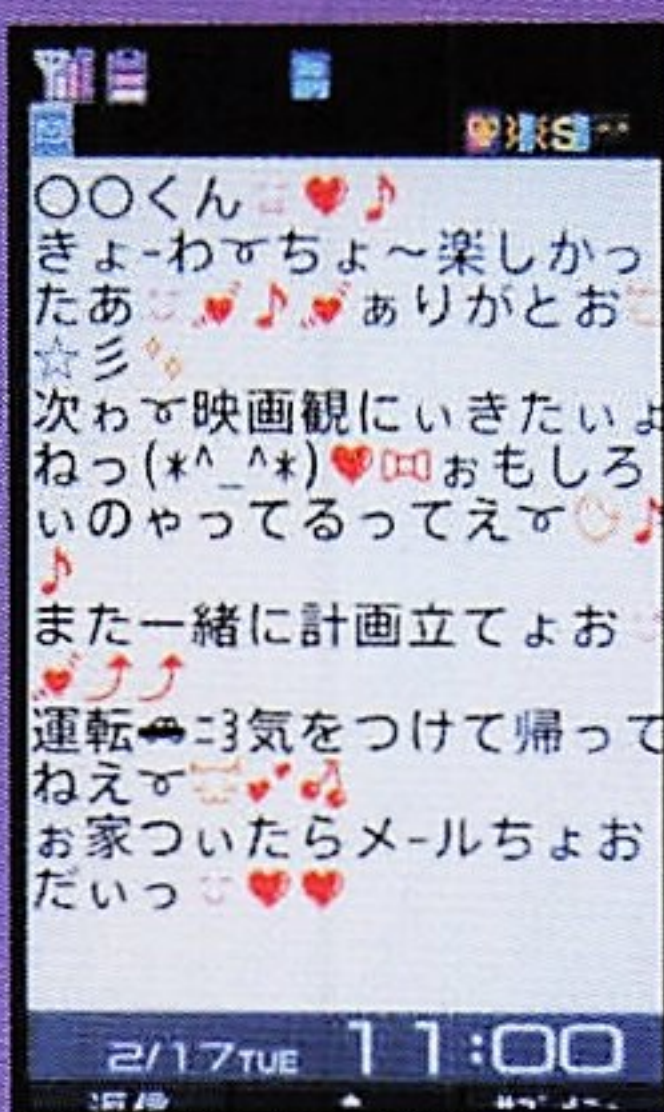 〇〇くん❤♪
きょ-わ➰ちょ〜楽しかっ
たあ💘♪💘ぁりがとお
☆彡✨
次ゎ➰映画観にぃきたぃょ
ねっ(*^_^*)❤🎀ぉもしろ
ぃのゃってるってえ➰♪
♪
また一緒に計画立てょお
💘⤴⤴
運転🚗=3気をつけて帰って
ねえ➰💕🍒
ぉ家つぃたらメ-ルちょお
だぃっ❤❤
2/17TUE 11:00